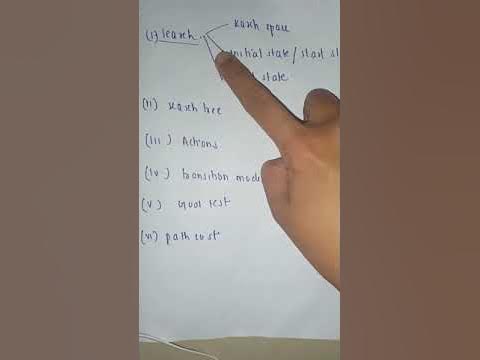 (I) Search
search space
initial state / start st
state
(II) search tree
(III) Actions
(IV) transition mode
(V) Goal test
(VI) path cost